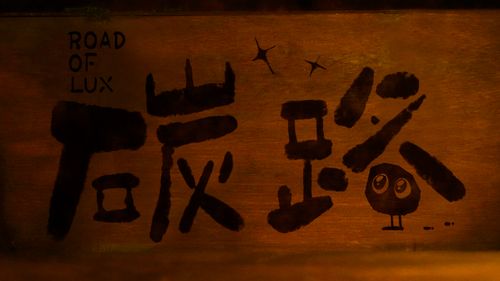 ROAD
OF
LUX
碳路